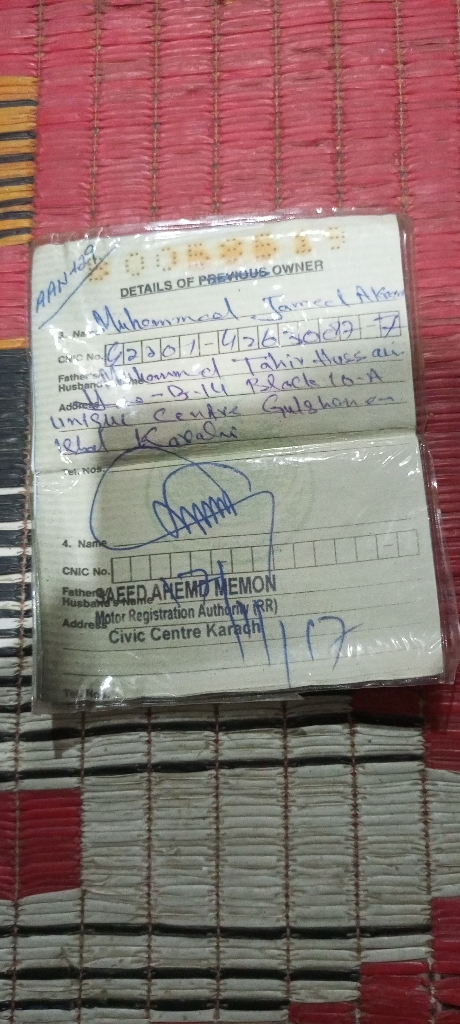 AAN129
DETAILS OF PREVIOUS OWNER
3. Name Muhammad Jameel Akram
CNIC No. 42201-4263007-7
Father's Muhammad Tahir Hussain
Husband's
Address B-14 Block 10-A
unique Centre Gulshan e
Iqbal Karachi
Tel. Nos.
4. Name
CNIC No.
Father's
Husband's Name
SAEED AHEMD MEMON
Motor Registration Authority (RR)
Address
Civic Centre Karachi
Tel. Nos.